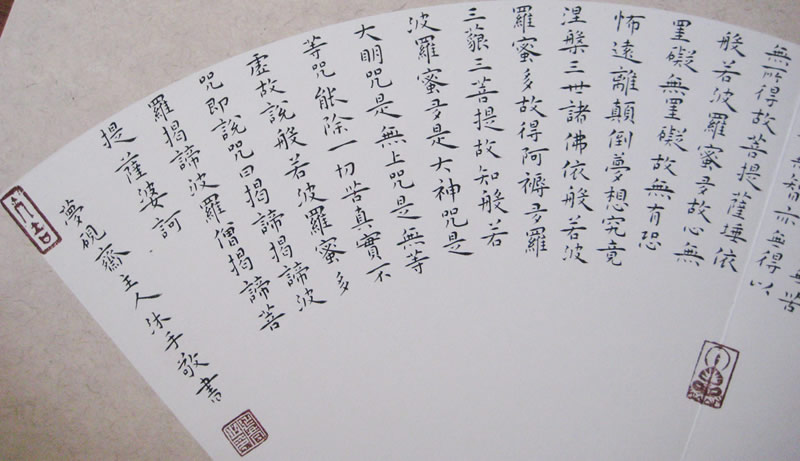 無苦
無智亦無得以
無所得故菩提薩埵依
般若波羅蜜多故心無
罣礙無罣礙故無有恐
怖遠離顛倒夢想究竟
涅槃三世諸佛依般若波
羅蜜多故得阿耨多羅
三藐三菩提故知般若
波羅蜜多是大神咒是
大明咒是無上咒是無等
等咒能除一切苦真實不
虛故說般若波羅蜜多
咒即說咒曰揭諦揭諦波
羅揭諦波羅僧揭諦菩
提薩婆訶
夢硯齋主人沐手敬書